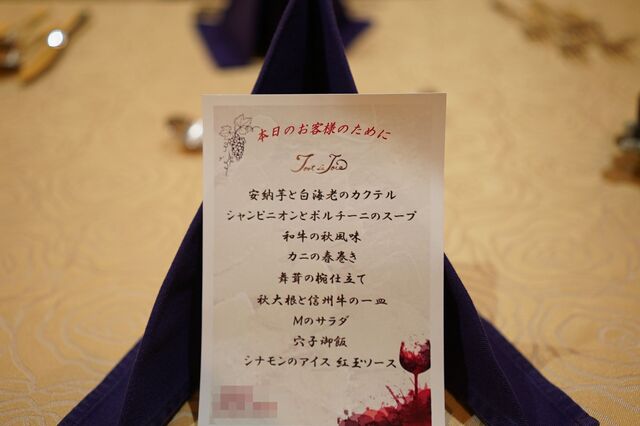 本日のお客様のために
安納芋と白海老のカクテル
シャンピニオンとポルチーニのスープ
和牛の秋風味
カニの春巻き
舞茸の椀仕立て
秋大根と信州牛の一皿
Mのサラダ
穴子御飯
シナモンのアイス 紅玉ソース